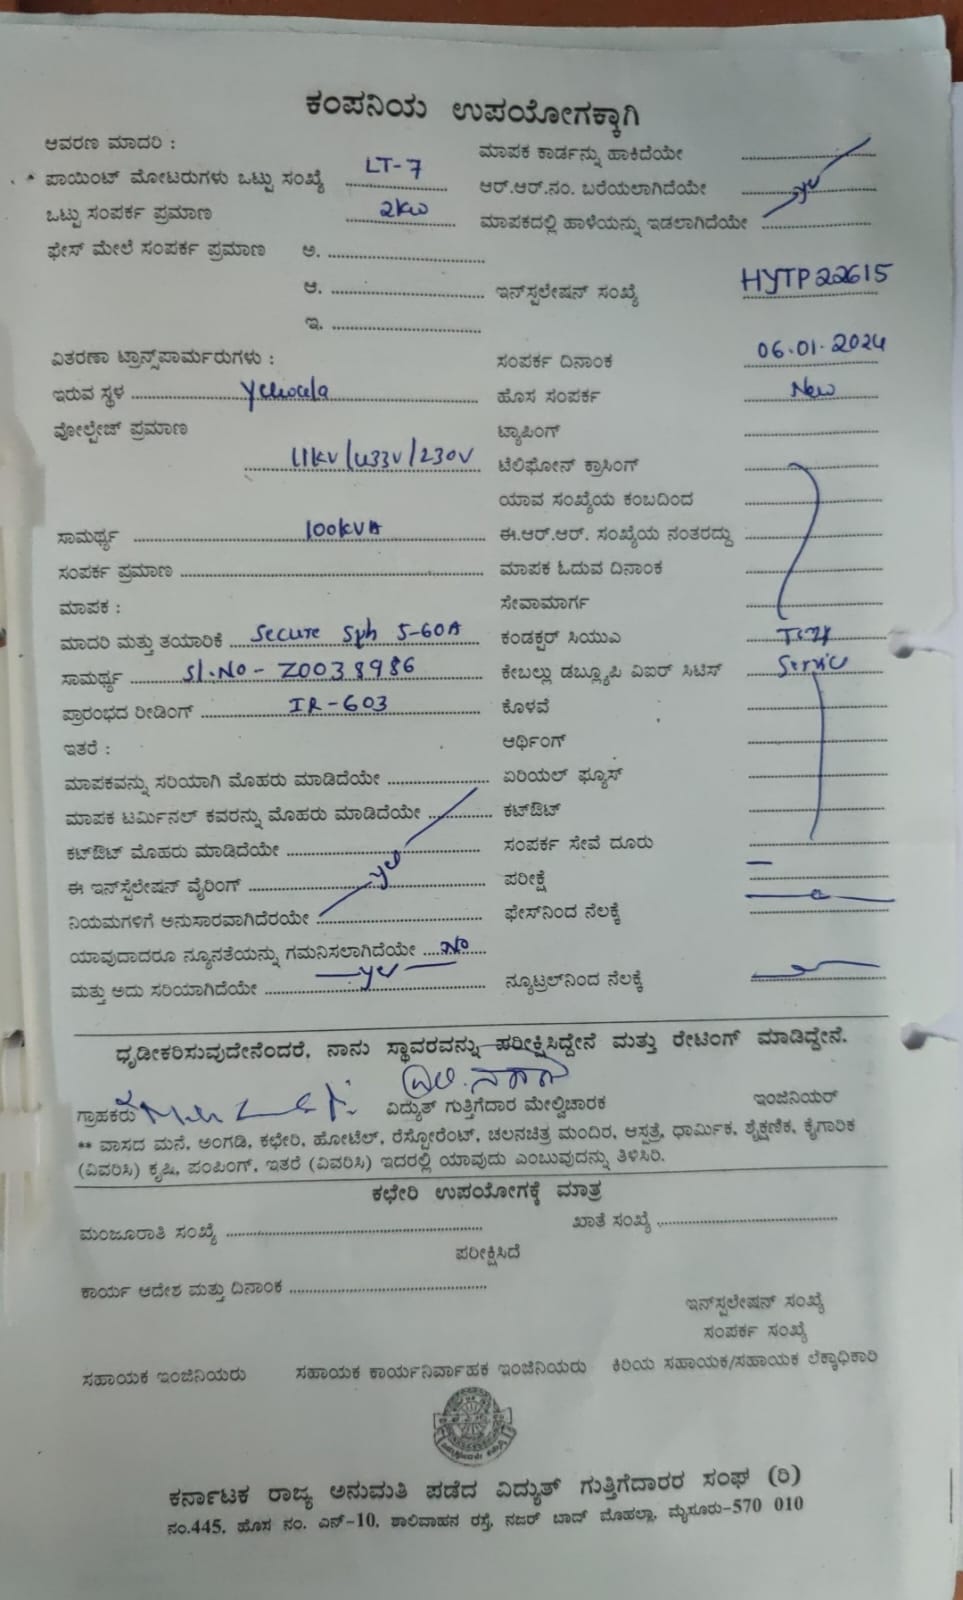 ಕಂಪನಿಯ ಉಪಯೋಗಕ್ಕಾಗಿ
ಆವರಣ ಮಾದರಿ :
ಪಾಯಿಂಟ್ ಮೋಟರುಗಳು ಒಟ್ಟು ಸಂಖ್ಯೆ LT-7
ಒಟ್ಟು ಸಂಪರ್ಕ ಪ್ರಮಾಣ 2kw
ಫೇಸ್ ಮೇಲೆ ಸಂಪರ್ಕ ಪ್ರಮಾಣ ಅ.
ಆ.
ಇ.
ವಿತರಣಾ ಟ್ರಾನ್ಸ್‌ಪಾರ್ಮರುಗಳು :
ಇರುವ ಸ್ಥಳ
ವೋಲ್ಟೇಜ್ ಪ್ರಮಾಣ
11kv/433v/230v
ಸಾಮರ್ಥ್ಯ 100kVA
ಸಂಪರ್ಕ ಪ್ರಮಾಣ
ಮಾಪಕ :
ಮಾದರಿ ಮತ್ತು ತಯಾರಿಕೆ Secure Sph 5-60A
ಸಾಮರ್ಥ್ಯ Sl.No - Z0038986
ಪ್ರಾರಂಭದ ರೀಡಿಂಗ್ IR-603
ಇತರೆ :
ಮಾಪಕವನ್ನು ಸರಿಯಾಗಿ ಮೊಹರು ಮಾಡಿದೆಯೇ
ಮಾಪಕ ಟರ್ಮಿನಲ್ ಕವರನ್ನು ಮೊಹರು ಮಾಡಿದೆಯೇ
ಕಟ್‌ಔಟ್ ಮೊಹರು ಮಾಡಿದೆಯೇ
ಈ ಇನ್‌ಸ್ಪೆಲೇಷನ್ ವೈರಿಂಗ್ yes
ನಿಯಮಗಳಿಗೆ ಅನುಸಾರವಾಗಿದೆರಯೇ
ಯಾವುದಾದರೂ ನ್ಯೂನತೆಯನ್ನು ಗಮನಿಸಲಾಗಿದೆಯೇ No
ಮತ್ತು ಅದು ಸರಿಯಾಗಿದೆಯೇ yes
ಮಾಪಕ ಕಾರ್ಡನ್ನು ಹಾಕಿದೆಯೇ
ಆರ್.ಆರ್.ನಂ. ಬರೆಯಲಾಗಿದೆಯೇ yes
ಮಾಪಕದಲ್ಲಿ ಹಾಳೆಯನ್ನು ಇಡಲಾಗಿದೆಯೇ
ಇನ್‌ಸ್ಪಲೇಷನ್ ಸಂಖ್ಯೆ HYTP22615
ಸಂಪರ್ಕ ದಿನಾಂಕ 06.01.2024
ಹೊಸ ಸಂಪರ್ಕ New
ಟ್ಯಾಪಿಂಗ್
ಟೆಲಿಫೋನ್ ಕ್ರಾಸಿಂಗ್
ಯಾವ ಸಂಖ್ಯೆಯ ಕಂಬದಿಂದ
ಈ.ಆರ್.ಆರ್. ಸಂಖ್ಯೆಯ ನಂತರದ್ದು
ಮಾಪಕ ಓದುವ ದಿನಾಂಕ
ಸೇವಾಮಾರ್ಗ
ಕಂಡಕ್ಟರ್ ಸಿಯುಎ
ಕೇಬಲ್ಲು ಡಬ್ಲ್ಯೂಪಿ ವಿಐರ್ ಸಿಟಿಸ್ Service
ಕೊಳವೆ
ಆರ್ಥಿಂಗ್
ಏರಿಯಲ್ ಫ್ಯೂಸ್
ಕಟ್‌ಔಟ್
ಸಂಪರ್ಕ ಸೇವೆ ದೂರು
ಪರೀಕ್ಷೆ
ಫೇಸ್‌ನಿಂದ ನೆಲಕ್ಕೆ
ನ್ಯೂಟ್ರಲ್‌ನಿಂದ ನೆಲಕ್ಕೆ
ಧೃಡೀಕರಿಸುವುದೇನೆಂದರೆ, ನಾನು ಸ್ಥಾವರವನ್ನು ಪರೀಕ್ಷಿಸಿದ್ದೇನೆ ಮತ್ತು ರೇಟಿಂಗ್ ಮಾಡಿದ್ದೇನೆ.
ಗ್ರಾಹಕರು ವಿದ್ಯುತ್ ಗುತ್ತಿಗೆದಾರ ಮೇಲ್ವಿಚಾರಕ ಇಂಜಿನಿಯರ್
** ವಾಸದ ಮನೆ, ಅಂಗಡಿ, ಕಛೇರಿ, ಹೋಟೆಲ್, ರೆಸ್ಟೋರೆಂಟ್, ಚಲನಚಿತ್ರ ಮಂದಿರ, ಆಸ್ಪತ್ರೆ, ಧಾರ್ಮಿಕ, ಶೈಕ್ಷಣಿಕ, ಕೈಗಾರಿಕ
(ವಿವರಿಸಿ) ಕೃಷಿ, ಪಂಪಿಂಗ್, ಇತರೆ (ವಿವರಿಸಿ) ಇದರಲ್ಲಿ ಯಾವುದು ಎಂಬುವುದನ್ನು ತಿಳಿಸಿರಿ.
ಕಛೇರಿ ಉಪಯೋಗಕ್ಕೆ ಮಾತ್ರ
ಮಂಜೂರಾತಿ ಸಂಖ್ಯೆ ಖಾತೆ ಸಂಖ್ಯೆ
ಪರೀಕ್ಷಿಸಿದೆ
ಕಾರ್ಯ ಆದೇಶ ಮತ್ತು ದಿನಾಂಕ
ಇನ್‌ಸ್ಪಲೇಷನ್ ಸಂಖ್ಯೆ
ಸಂಪರ್ಕ ಸಂಖ್ಯೆ
ಸಹಾಯಕ ಇಂಜಿನಿಯರು ಸಹಾಯಕ ಕಾರ್ಯನಿರ್ವಾಹಕ ಇಂಜಿನಿಯರು ಕಿರಿಯ ಸಹಾಯಕ/ಸಹಾಯಕ ಲೆಕ್ಕಾಧಿಕಾರಿ
ಕರ್ನಾಟಕ ರಾಜ್ಯ ಅನುಮತಿ ಪಡೆದ ವಿದ್ಯುತ್ ಗುತ್ತಿಗೆದಾರರ ಸಂಘ (ರಿ)
ನಂ.445, ಹೊಸ ನಂ. ಎನ್-10, ಶಾಲಿವಾಹನ ರಸ್ತೆ, ನಜರ್ ಬಾದ್ ಮೊಹಲ್ಲಾ, ಮೈಸೂರು-570 010